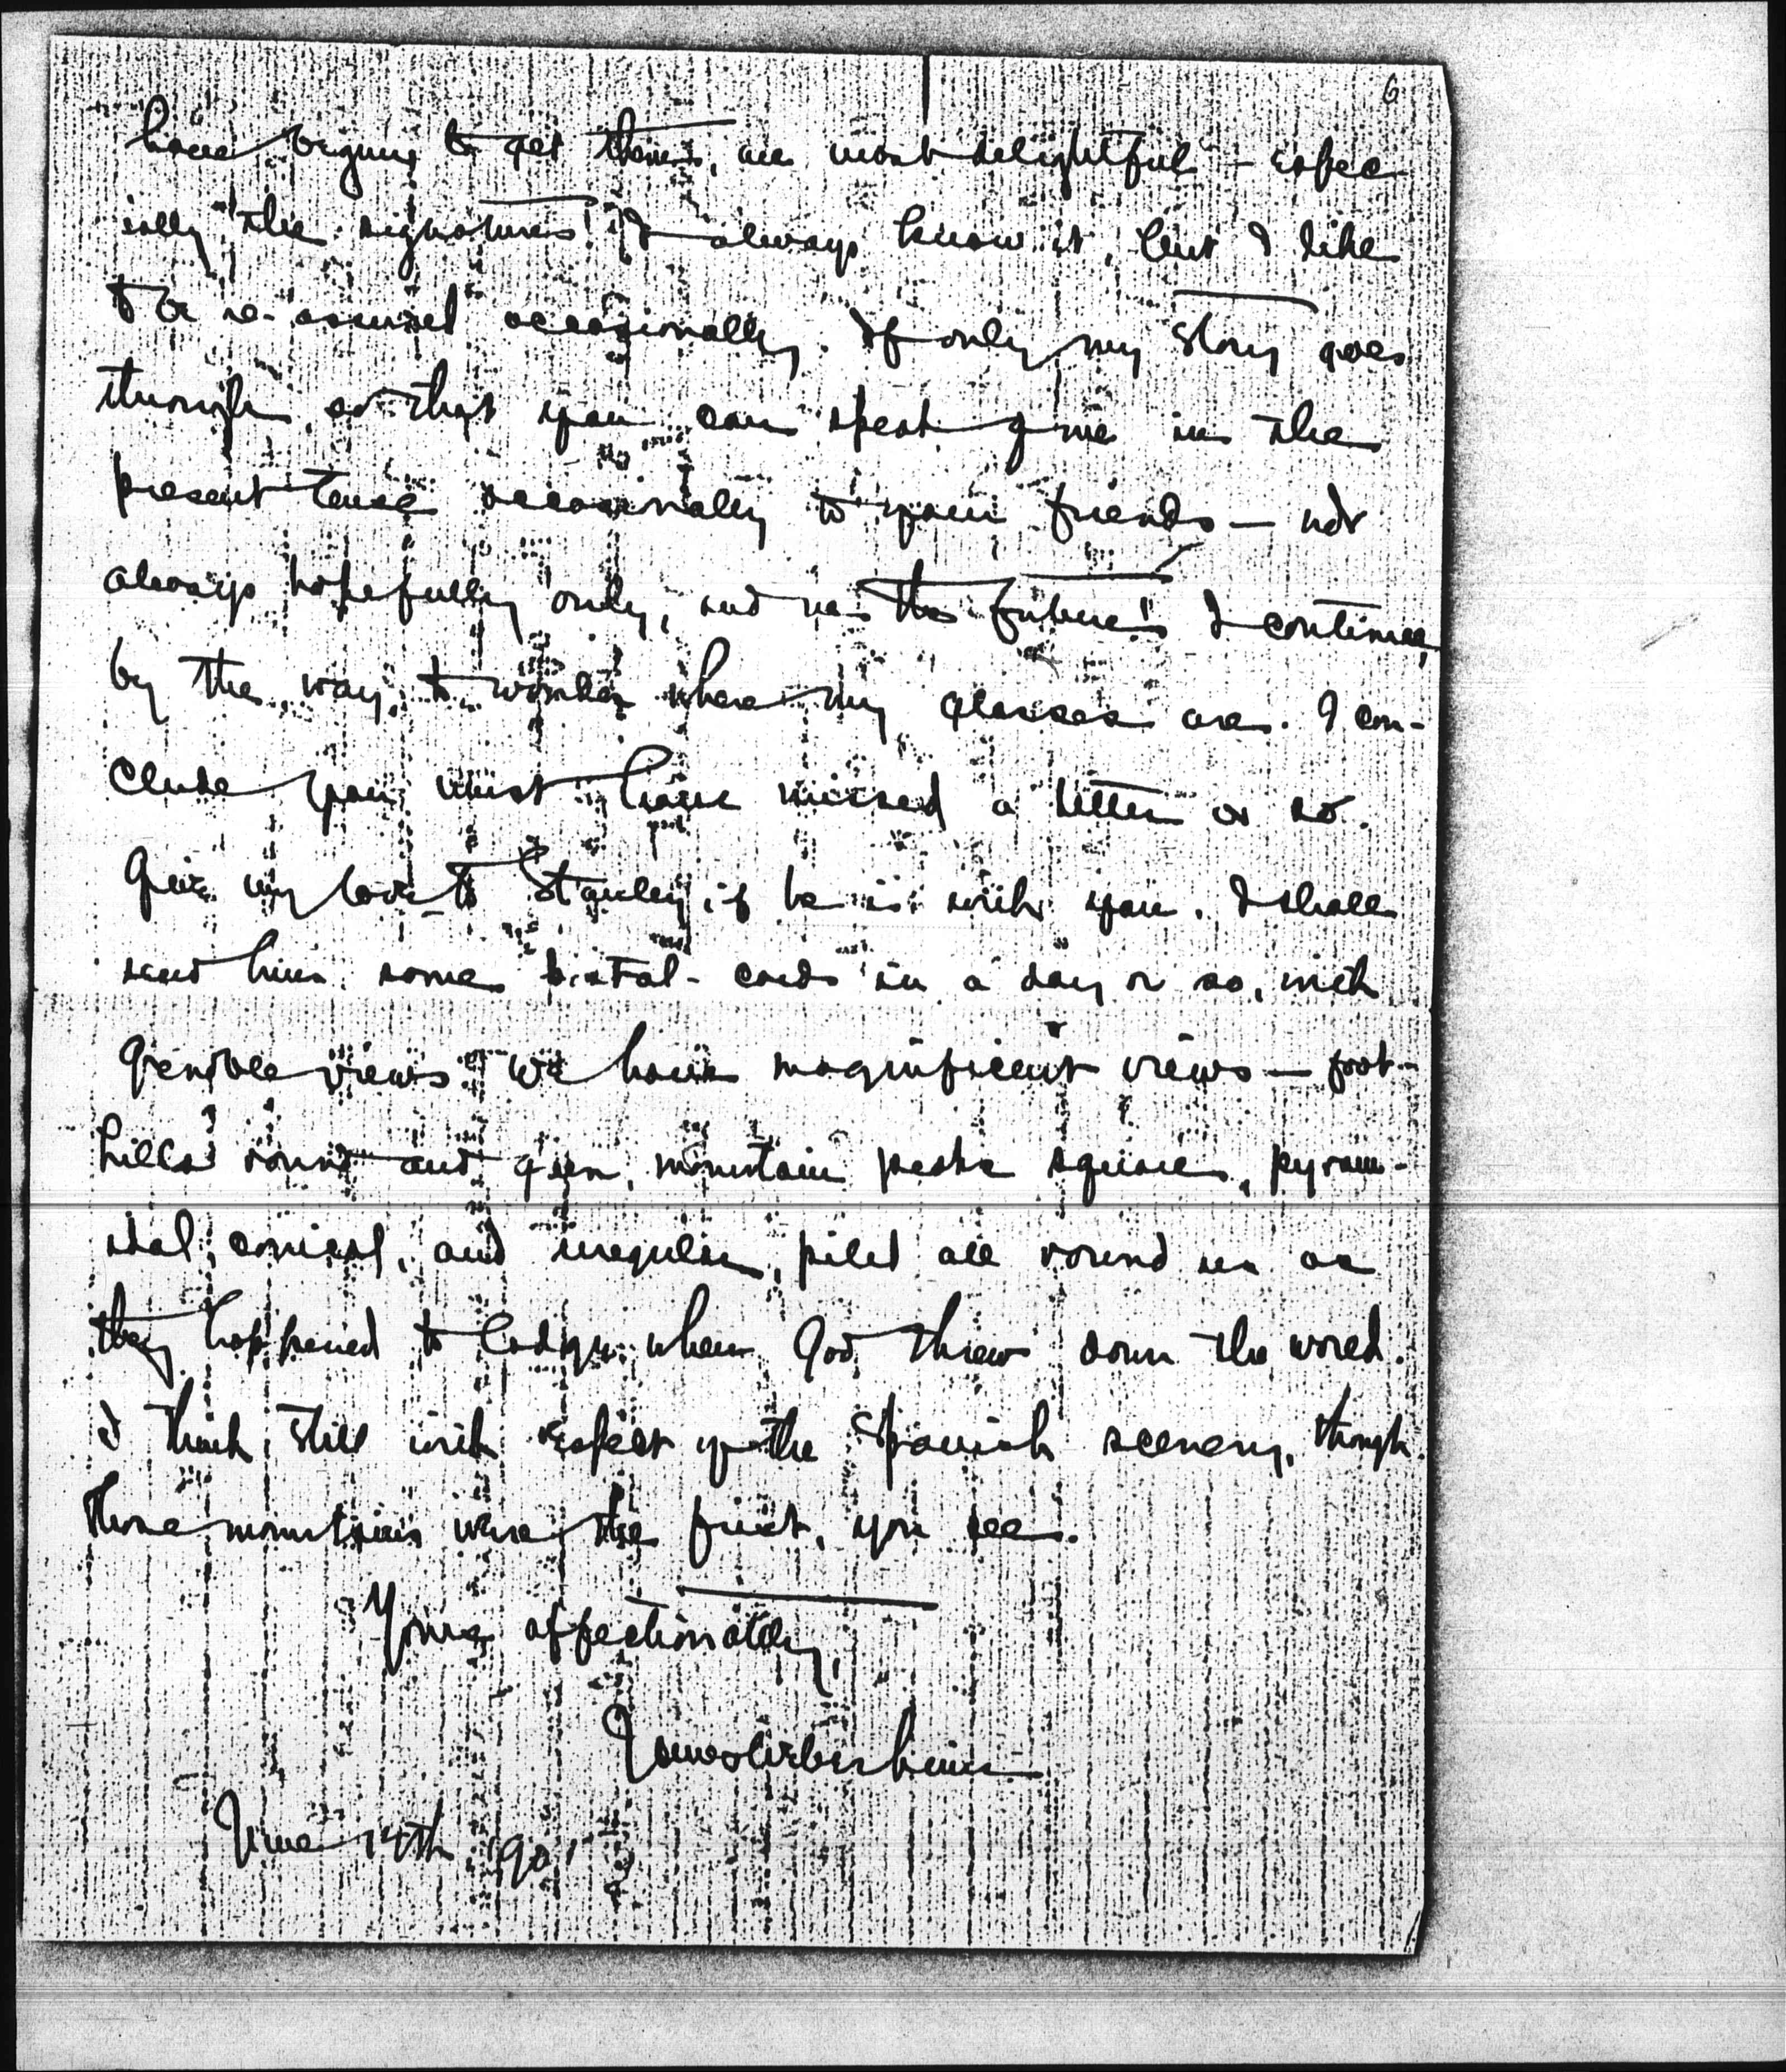 6
have begun to get them, are most delightful – espec
ially the signatures! I always know it, but I like
to be re-assured occasionally. If only my story goes
through so that you can speak of me in the
present tense occasionally to your friends — not
always hopefully only, and in the future! I continue,
by the way, to wonder where my glasses are. I con-
clude you must have missed a letter or so.
Give my love to Stanley, if he is with you. I shall
send him some postal-cards in a day or so, with
Grenoble views. We have magnificent views — foot-
hills round and green, mountain peaks square, pyram-
idal, conical, and irregular, piled all round us as
they happened to lodge when God threw down the world.
I think still with respect of the Spanish scenery, though
those mountains were the first, you see.
Yours affectionately,
June 14th '90'